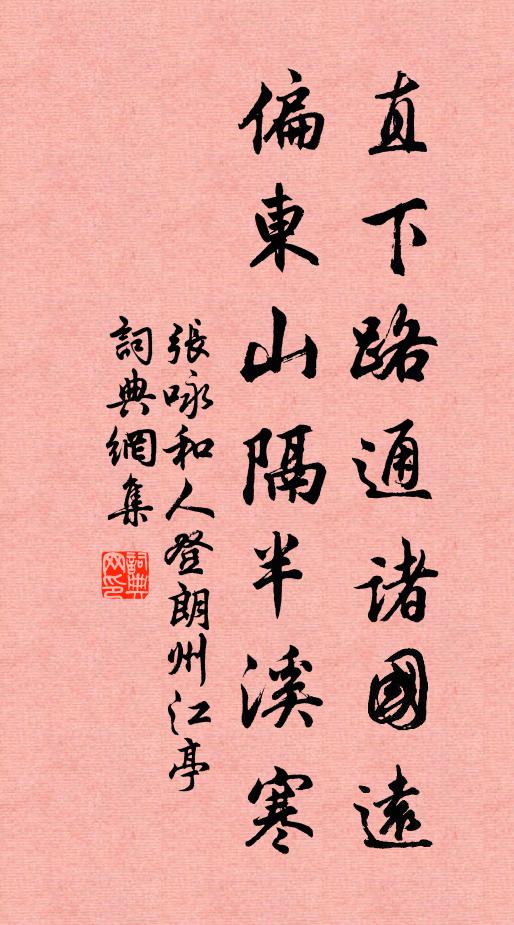 直下路通諸國遠
偏東山隔半溪寒
張咏和人登朗州江亭
詞典網集
詞典網印